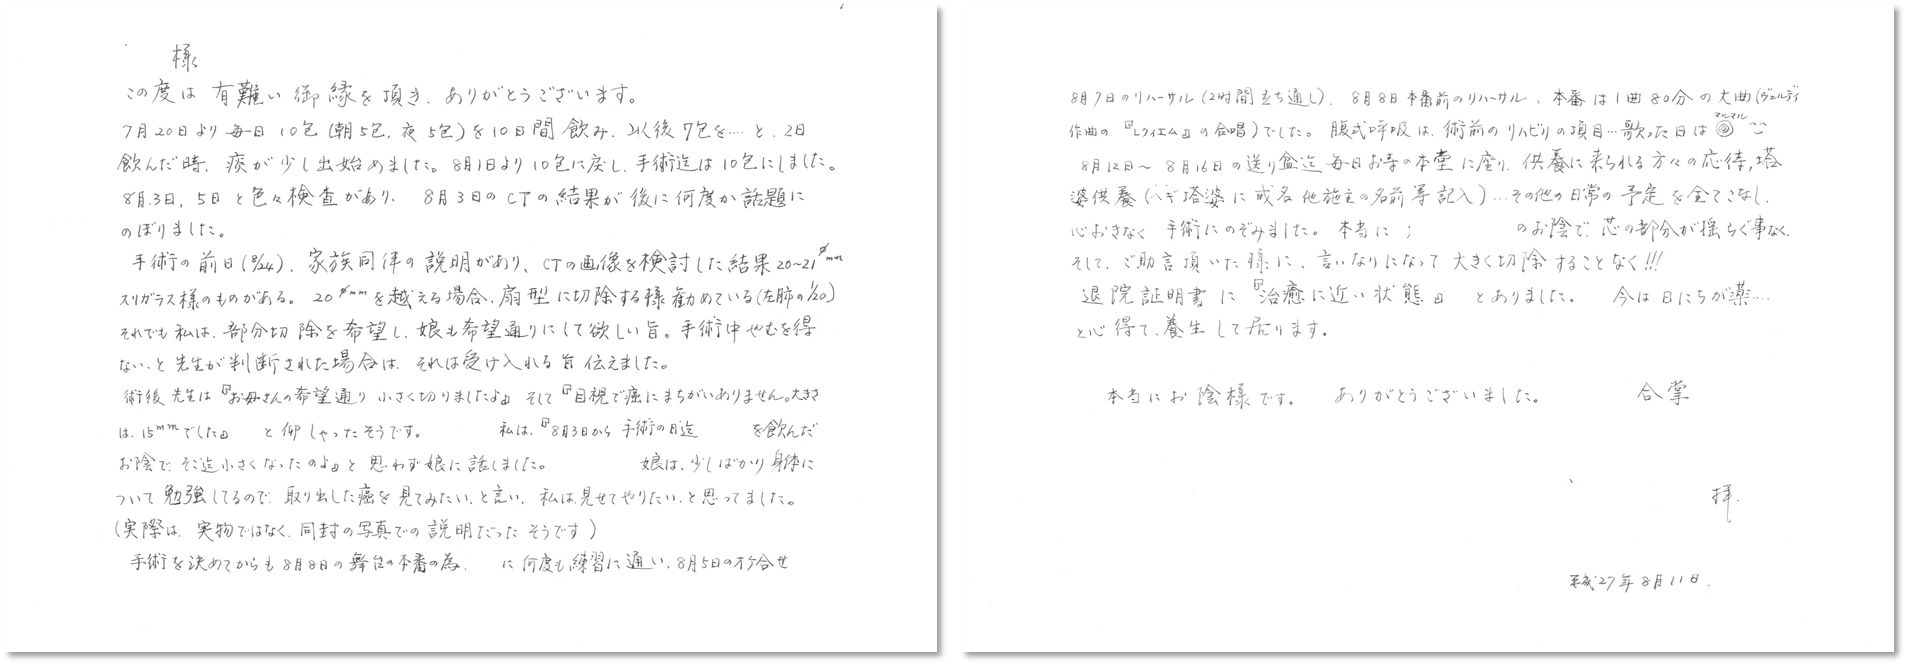 様
この度は 有難い御縁を頂き、ありがとうございます。
7月20日より毎日 10包(朝5包、夜5包)を10日間飲み、以後7包を…と、2日
飲んだ時、痰が少し出始めました。8月1日より10包に戻し、手術迄は10包にしました。
8月3日、5日と色々検査があり、8月3日のCTの結果が後に何度か話題に
のぼりました。
手術の前日(8/24)、家族同伴の説明があり、CTの画像を検討した結果20~21φmm
スリガラス様のものがある。20φmmを越える場合、扇型に切除する様勧めている(左肺の1/20)
それでも私は、部分切除を希望し、娘も希望通りにして欲しい旨。手術中やむを得
ない、と先生が判断された場合は、それは受け入れる旨伝えました。
術後先生は『お母さんの希望通り小さく切りましたよ』そして『目視で癌にまちがいありません。大きさ
は、15mmでした』と仰しゃったそうです。 私は、『8月3日から手術の日迄 を飲んだ
お陰で、そこ迄小さくなったのよ』と思わず娘に話しました。 娘は、少しばかり身体に
ついて勉強してるので、取り出した癌を見てみたい、と言い、私は見せてやりたい、と思ってました。
(実際は、実物ではなく、同封の写真での説明だったそうです)
手術を決めてからも8月8日の舞台の本番の為、 に何度も練習に通い、8月5日のオケ合せ
8月7日のリハーサル(2時間立ち通し)、8月8日本番前のリハーサル、本番は1曲80分の大曲(ヴェルディ
作曲の『レクイエム』の合唱)でした。腹式呼吸は、術前のリハビリの項目…歌った日は◎マルマル
8月12日~8月16日の送り盆迄毎日お寺の本堂に座り、供養に来られる方々の応待、塔
婆供養(ハギ塔婆に戒名他施主の名前等記入)…その他の日常の予定を全てこなし、
心おきなく 手術にのぞみました。本当に のお陰で、芯の部分が揺らぐ事なく、
そして、ご助言頂いた様に、言いなりになって大きく切除することなく!!!
退院証明書に『治癒に近い状態』とありました。 今は日にちが薬…
と心得て、養生して居ります。
本当にお陰様です。 ありがとうございました。 合掌
拝、
平成27年8月11日.